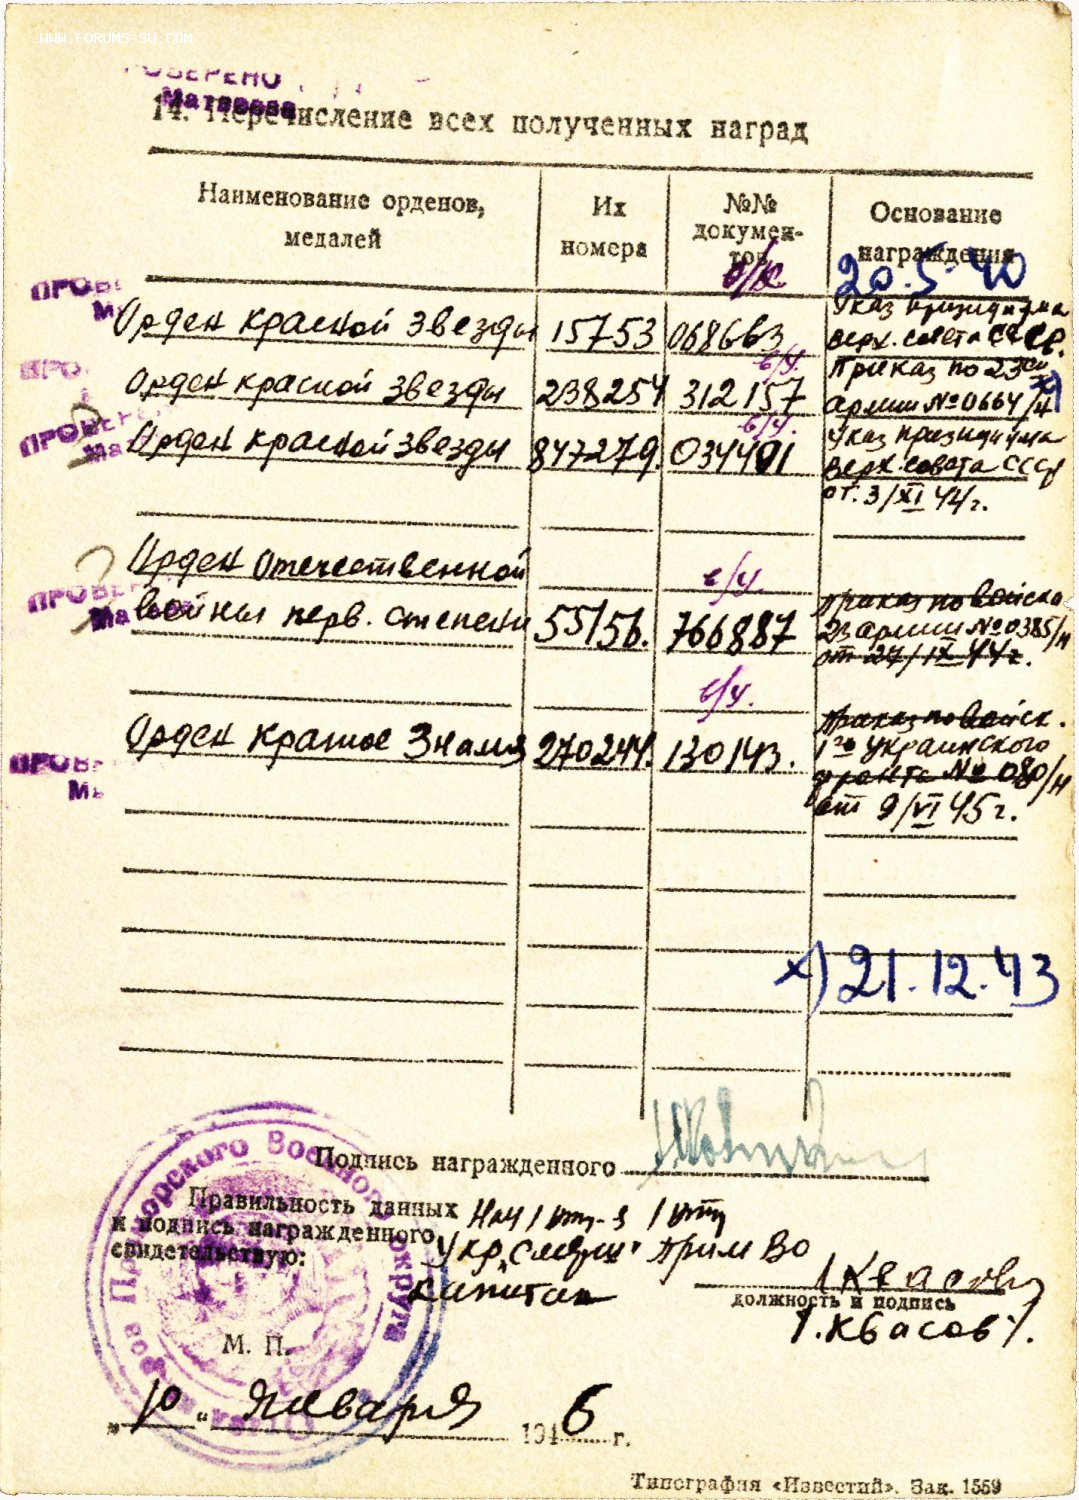 WWW.FORUMS-SU.COM
ПРОВЕРЕНО
Матвеева
14. Перечисление всех полученных наград
Наименование орденов, медалей
Их номера
№№ документов
Основание награждения
о/к
20.5.40
Орден Красной Звезды 15753 068663 Указ президиума Верх. совета СССР.
в/у.
Орден Красной Звезды 238254 312157 Приказ по 23ей армии №0664/н х)
в/у.
Орден Красной Звезды 847279. 034401 Указ президиума Верх. совета СССР от. 3/XI 44г.
в/у.
Орден Отечественной войны перв. степени 55156. 766887 Приказ по войска 23 армии №0385/н от 27/IX 44г.
в/у.
Орден Красное Знамя 270244. 130143. Приказ по войск. 1го Украинского фронта № 080/н от 9/VI 45г.
х) 21.12.43
Подпись награжденного
Правильность данных
и подпись награжденного
свидетельствую:
Укр. "Смерш" ПримВО
капитан
должность и подпись
/.Квасов/.
Приморского Военного округа
М. П.
„10“ Января 1946 г.
Типография «Известий». Зак. 1559